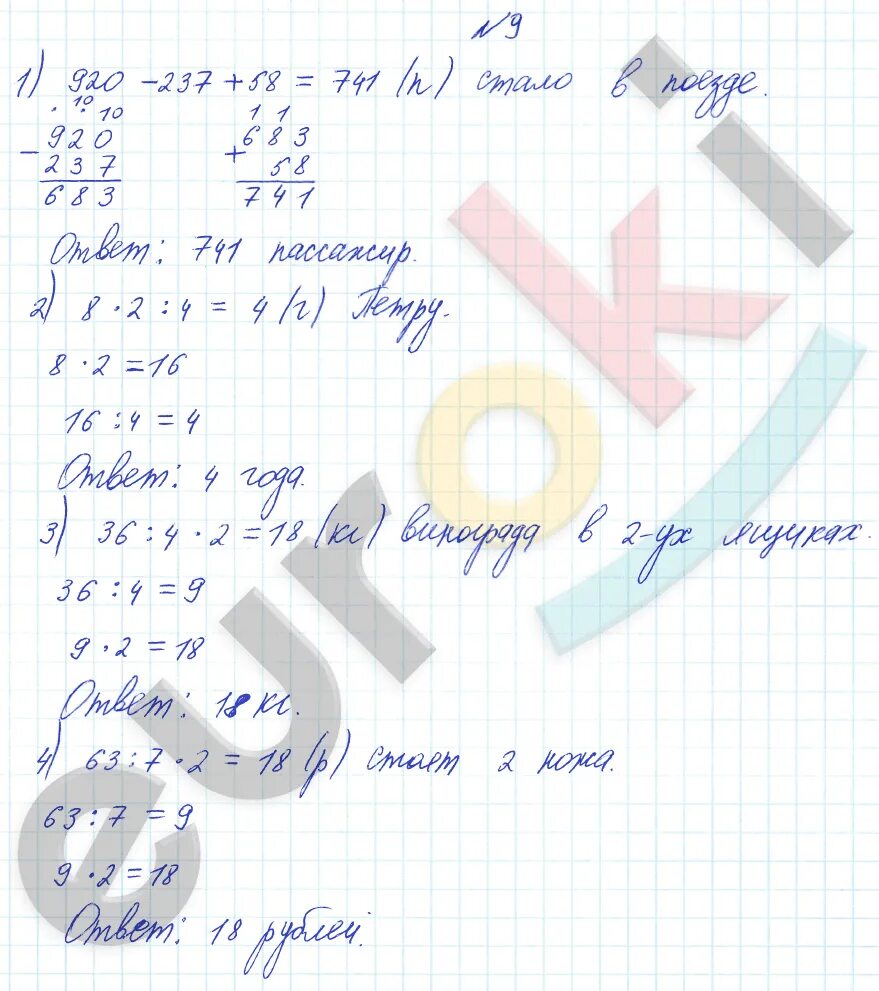 №9
1) 920 - 237 + 58 = 741 (п) стало в поезде.
. 10 . 10
1 1
- 920
237
683
+ 683
58
741
Ответ: 741 пассажир.
2) 8 · 2 : 4 = 4 (г) Петру.
8 · 2 = 16
16 : 4 = 4
Ответ: 4 года.
3) 36 : 4 · 2 = 18 (кг) винограда в 2-ух ящиках.
36 : 4 = 9
9 · 2 = 18
Ответ: 18 кг.
4) 63 : 7 · 2 = 18 (р) стоят 2 ножа.
63 : 7 = 9
9 · 2 = 18
Ответ: 18 рублей.
euroki